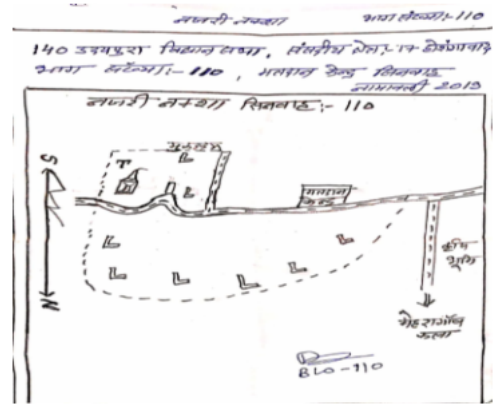 नजरी नक्शा भाग संख्या:-110
140 उदयपुरा विधान सभा, संसदीय क्षेत्र:-17 होशंगाबाद
भाग संख्या:-110, मतदान केन्द्र सिनवाह
नामावली 2019
नजरी नक्शा सिनवाह:-110
S
मतदान
केन्द्र
N
कृषि
भूमि
मेहरागाँव
कला
BLO-110